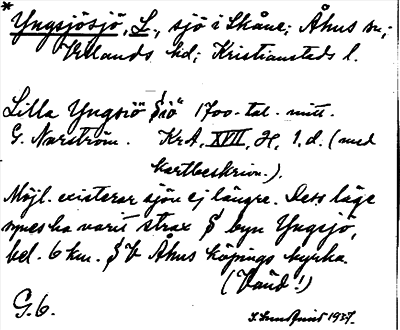 * Yngsjösjö, L., sjö i Skåne; Åhus sn;
Villands hd; Kristianstads l.
Lilla Yngsiö Siö 1700-tal. mitt.
G. Narström. KrA, XVII, H, 1.d. (med
kartbeskrivn.).
Möjl. existerar sjön ej längre. Dess läge
synes ha varit strax S byn Yngsjö,
bel. 6 km. S V Åhus köpings kyrka.
(Vänd!)
G.6.
1927.